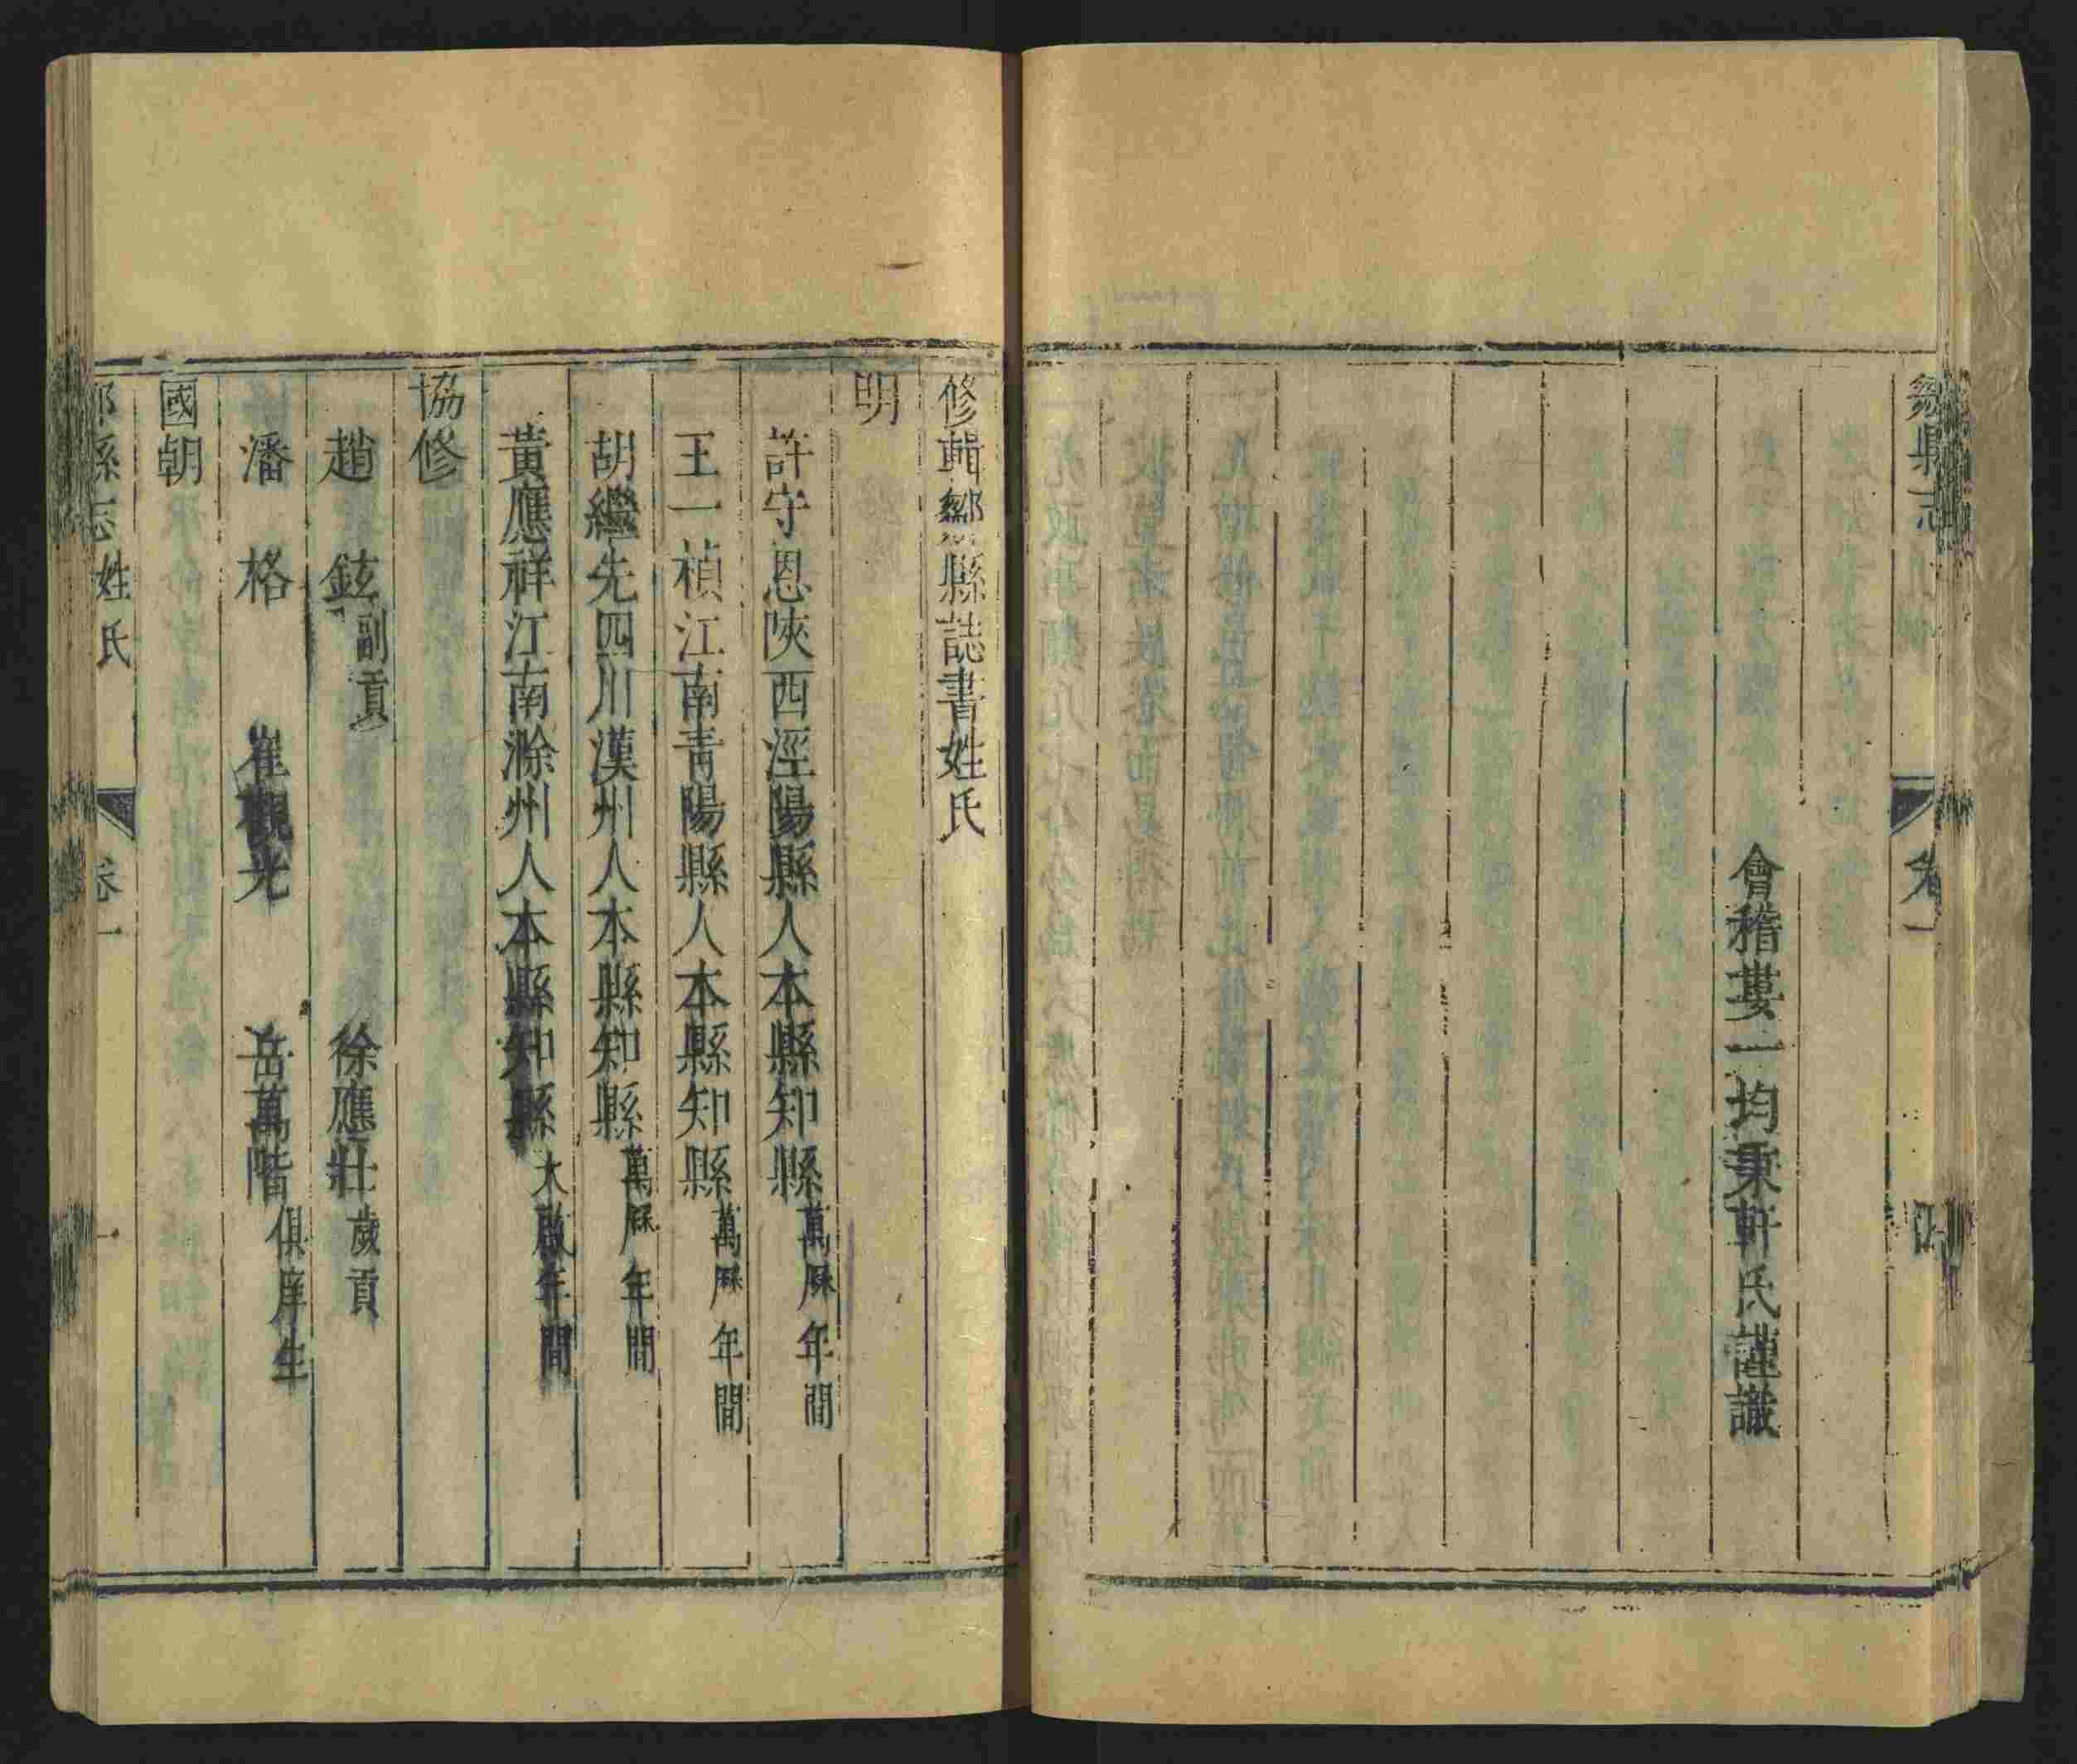 鄒縣志 卷一 四
會稽婁一均秉軒氏謹識
修輯鄒縣誌書姓氏
明
許守恩陝西涇陽縣人本縣知縣萬厤年間
王一楨江南青陽縣人本縣知縣萬厤年間
胡繼先四川漢州人本縣知縣萬厤年間
黃應祥江南滁州人本縣知縣天啟年間
協修
趙鉉副貢 徐應壯歲貢
潘格 崔觀光 岳萬階俱庠生
國朝
鄒縣志 姓氏 卷一 一